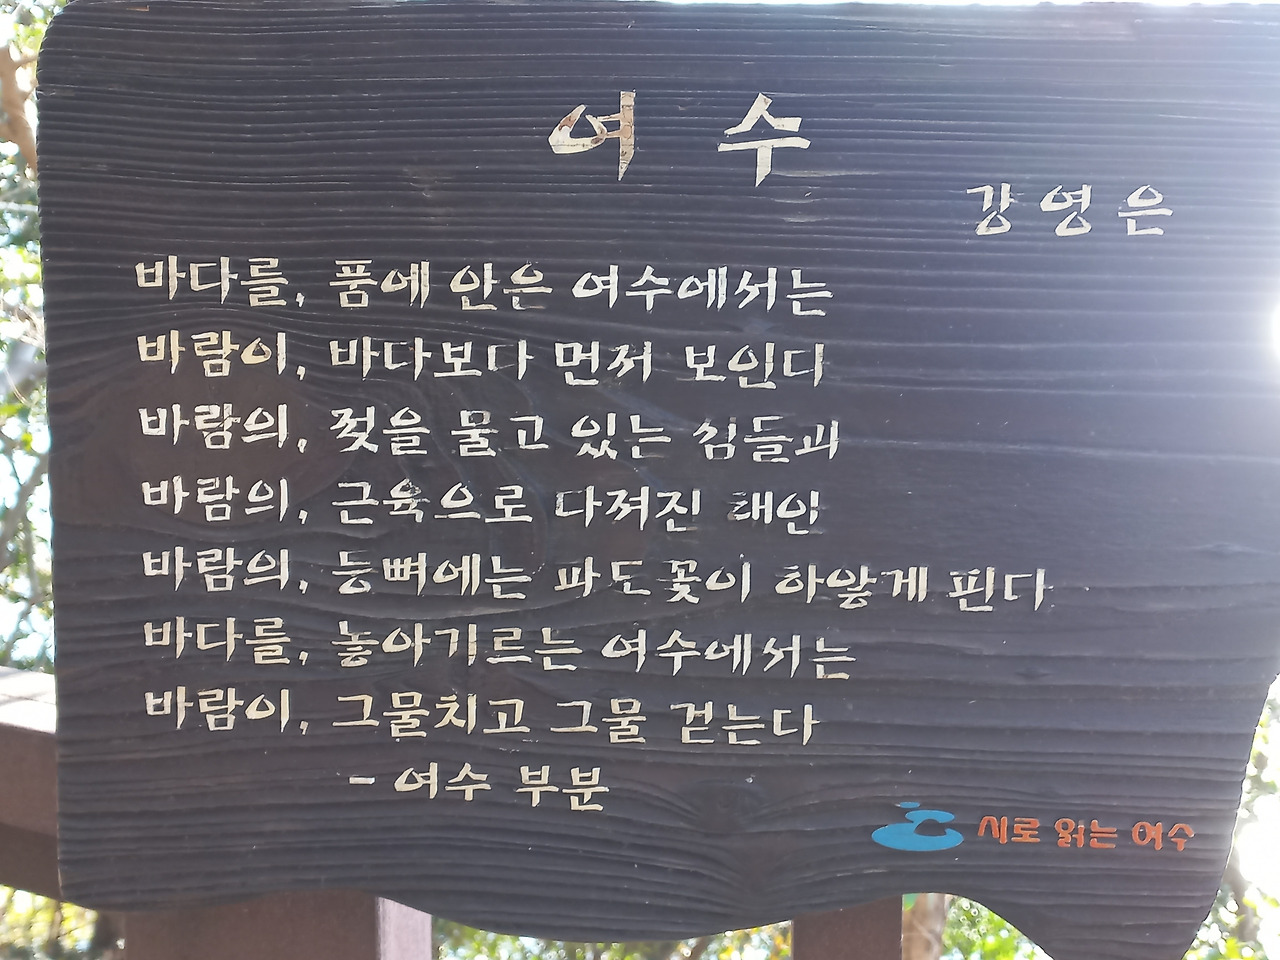 여수
강영은
바다를, 품에 안은 여수에서는
바람이, 바다보다 먼저 보인다
바람의, 젖을 물고 있는 섬들과
바람의, 근육으로 다져진
바람의, 등뼈에는 파도꽃이 하얗게 핀다
바다를, 놓아기르는 여수에서는
바람이, 그물치고 그물 걷는다
- 여수 부분
시로 읽는 여수